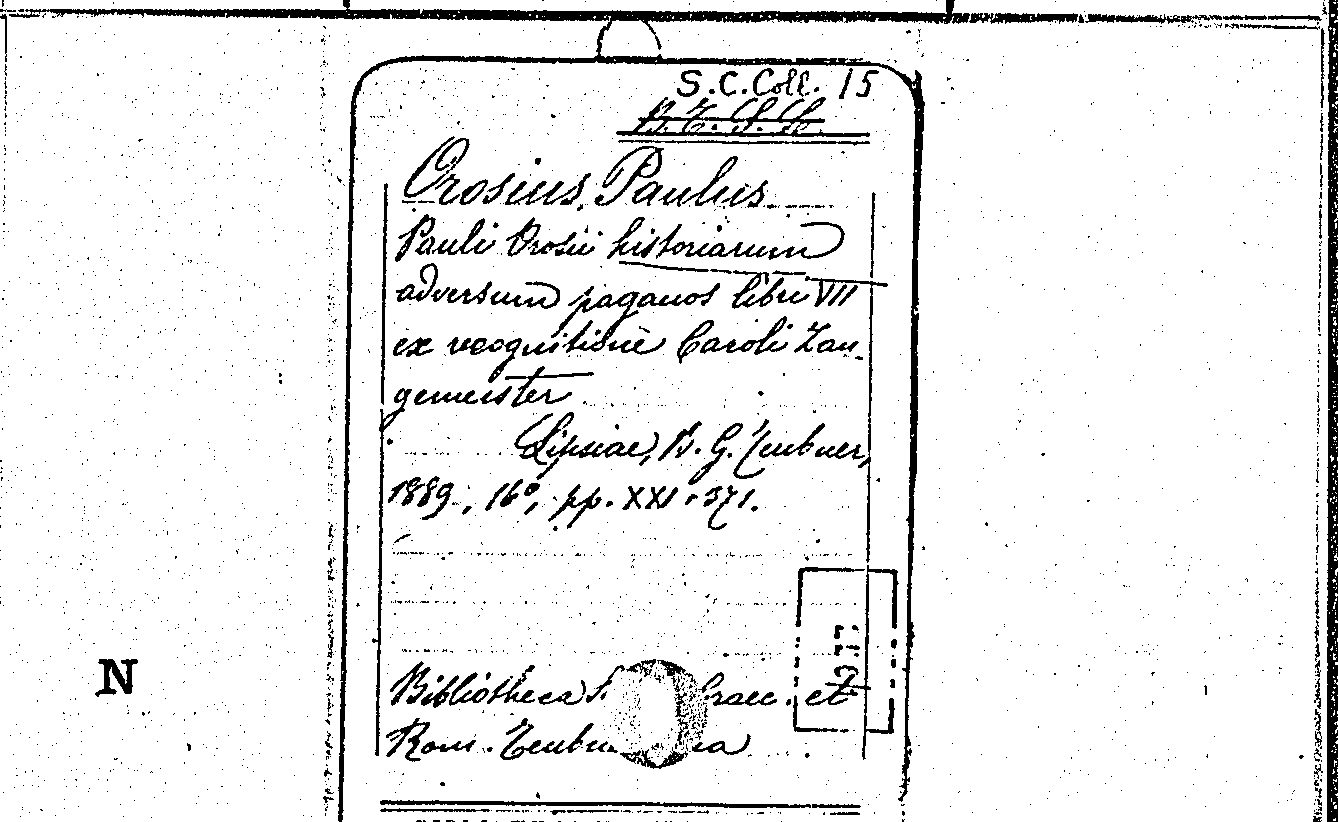 S.C.Coll. 15
B.T.S.L.
Orosius, Paulus
Pauli Orosii historiarum
adversum paganos libri VII
ex recognitione Caroli Zan-
gemeister
Lipsiae, B. G. Teubner,
1889, 16°, pp. XXI-371.
N
Bibliotheca S. Graec. et
Rom. Teubn